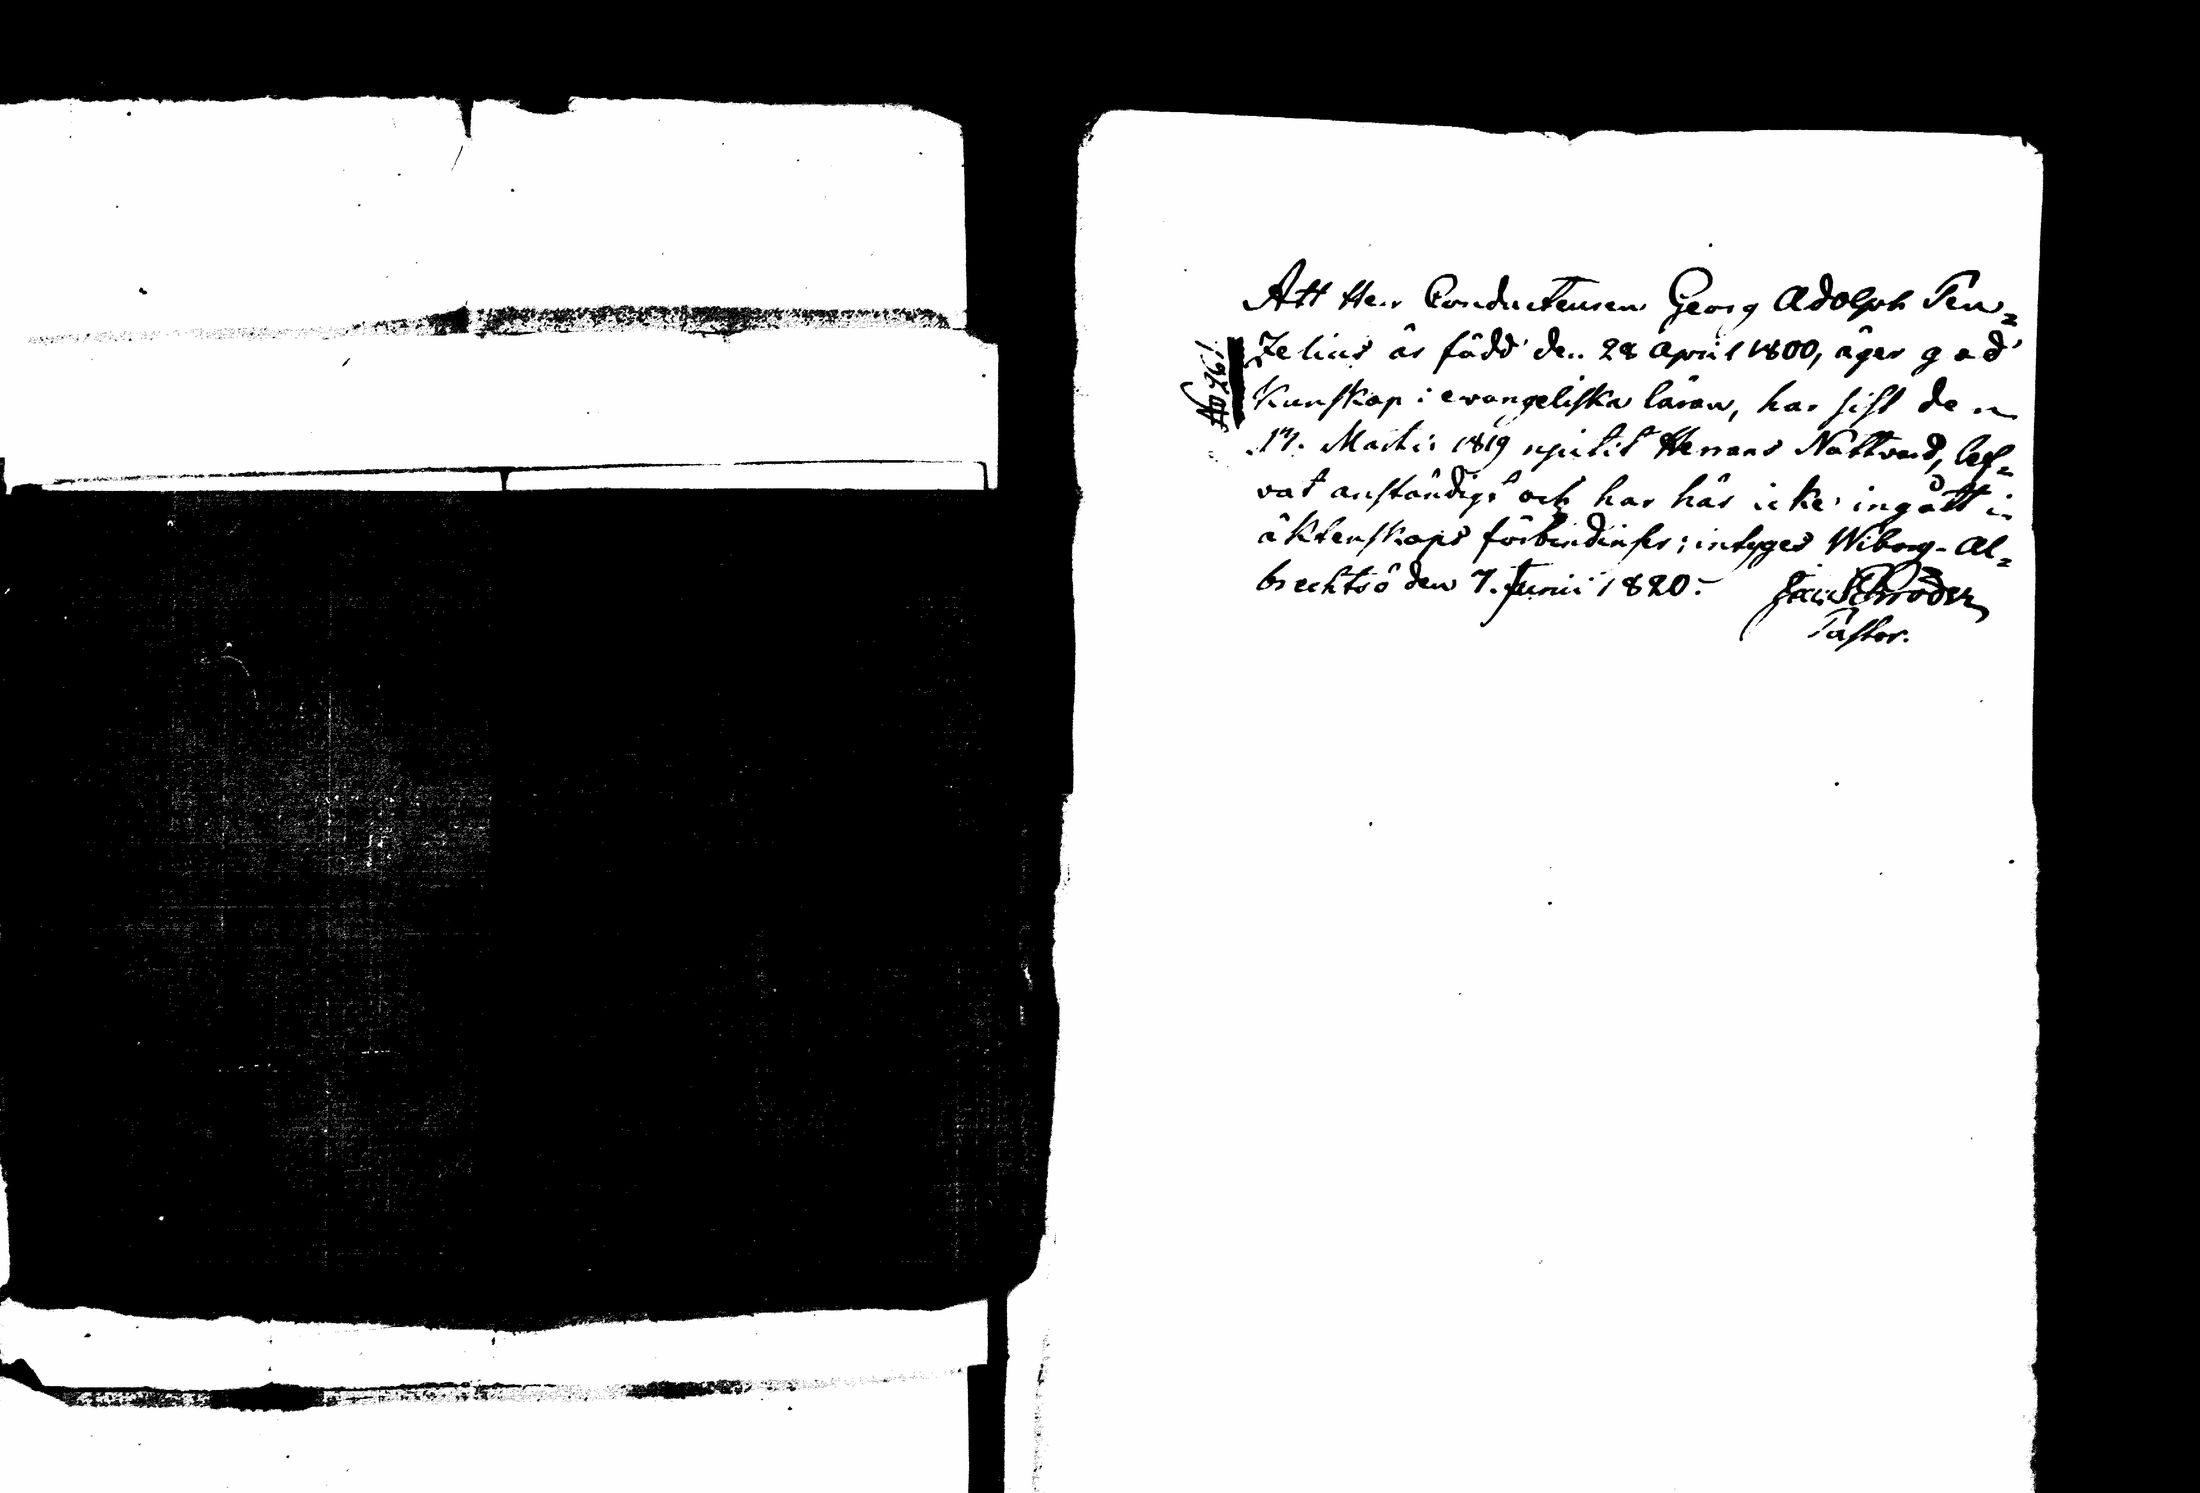 No 26!
Att Herr Conducteuren Georg Adolph Ten=
zelius är född den 28 April 1800, äger god
kunskap i evangeliska läran, har sist den
17. Martii 1819 njutit Herrans Nattvard, lef=
vat anständigt och har här icke ingått i
äktenskaps förbindelser; intygas Wiborg-Al=
brechtsö den 7. Junii 1820.- Schröder
Pastor.